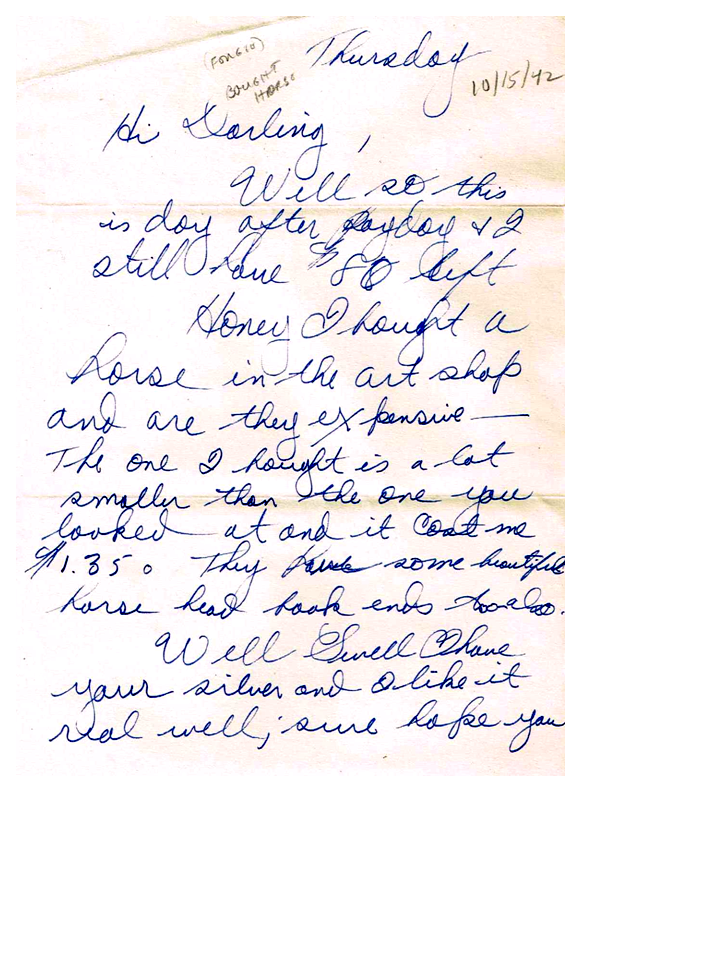 Thursday
10/15/42
BOUGHT
HORSE
Hi Darling,
Well so this
is day after payday & I
still have $80 left
Honey I bought a
horse in the art shop
and are they expensive —
The one I bought is a lot
smaller than the one you
looked at and it cost me
$1.35. They have some beautiful
horse head book ends too also.
Well I have
your silver and I like it
real well; sure hope you